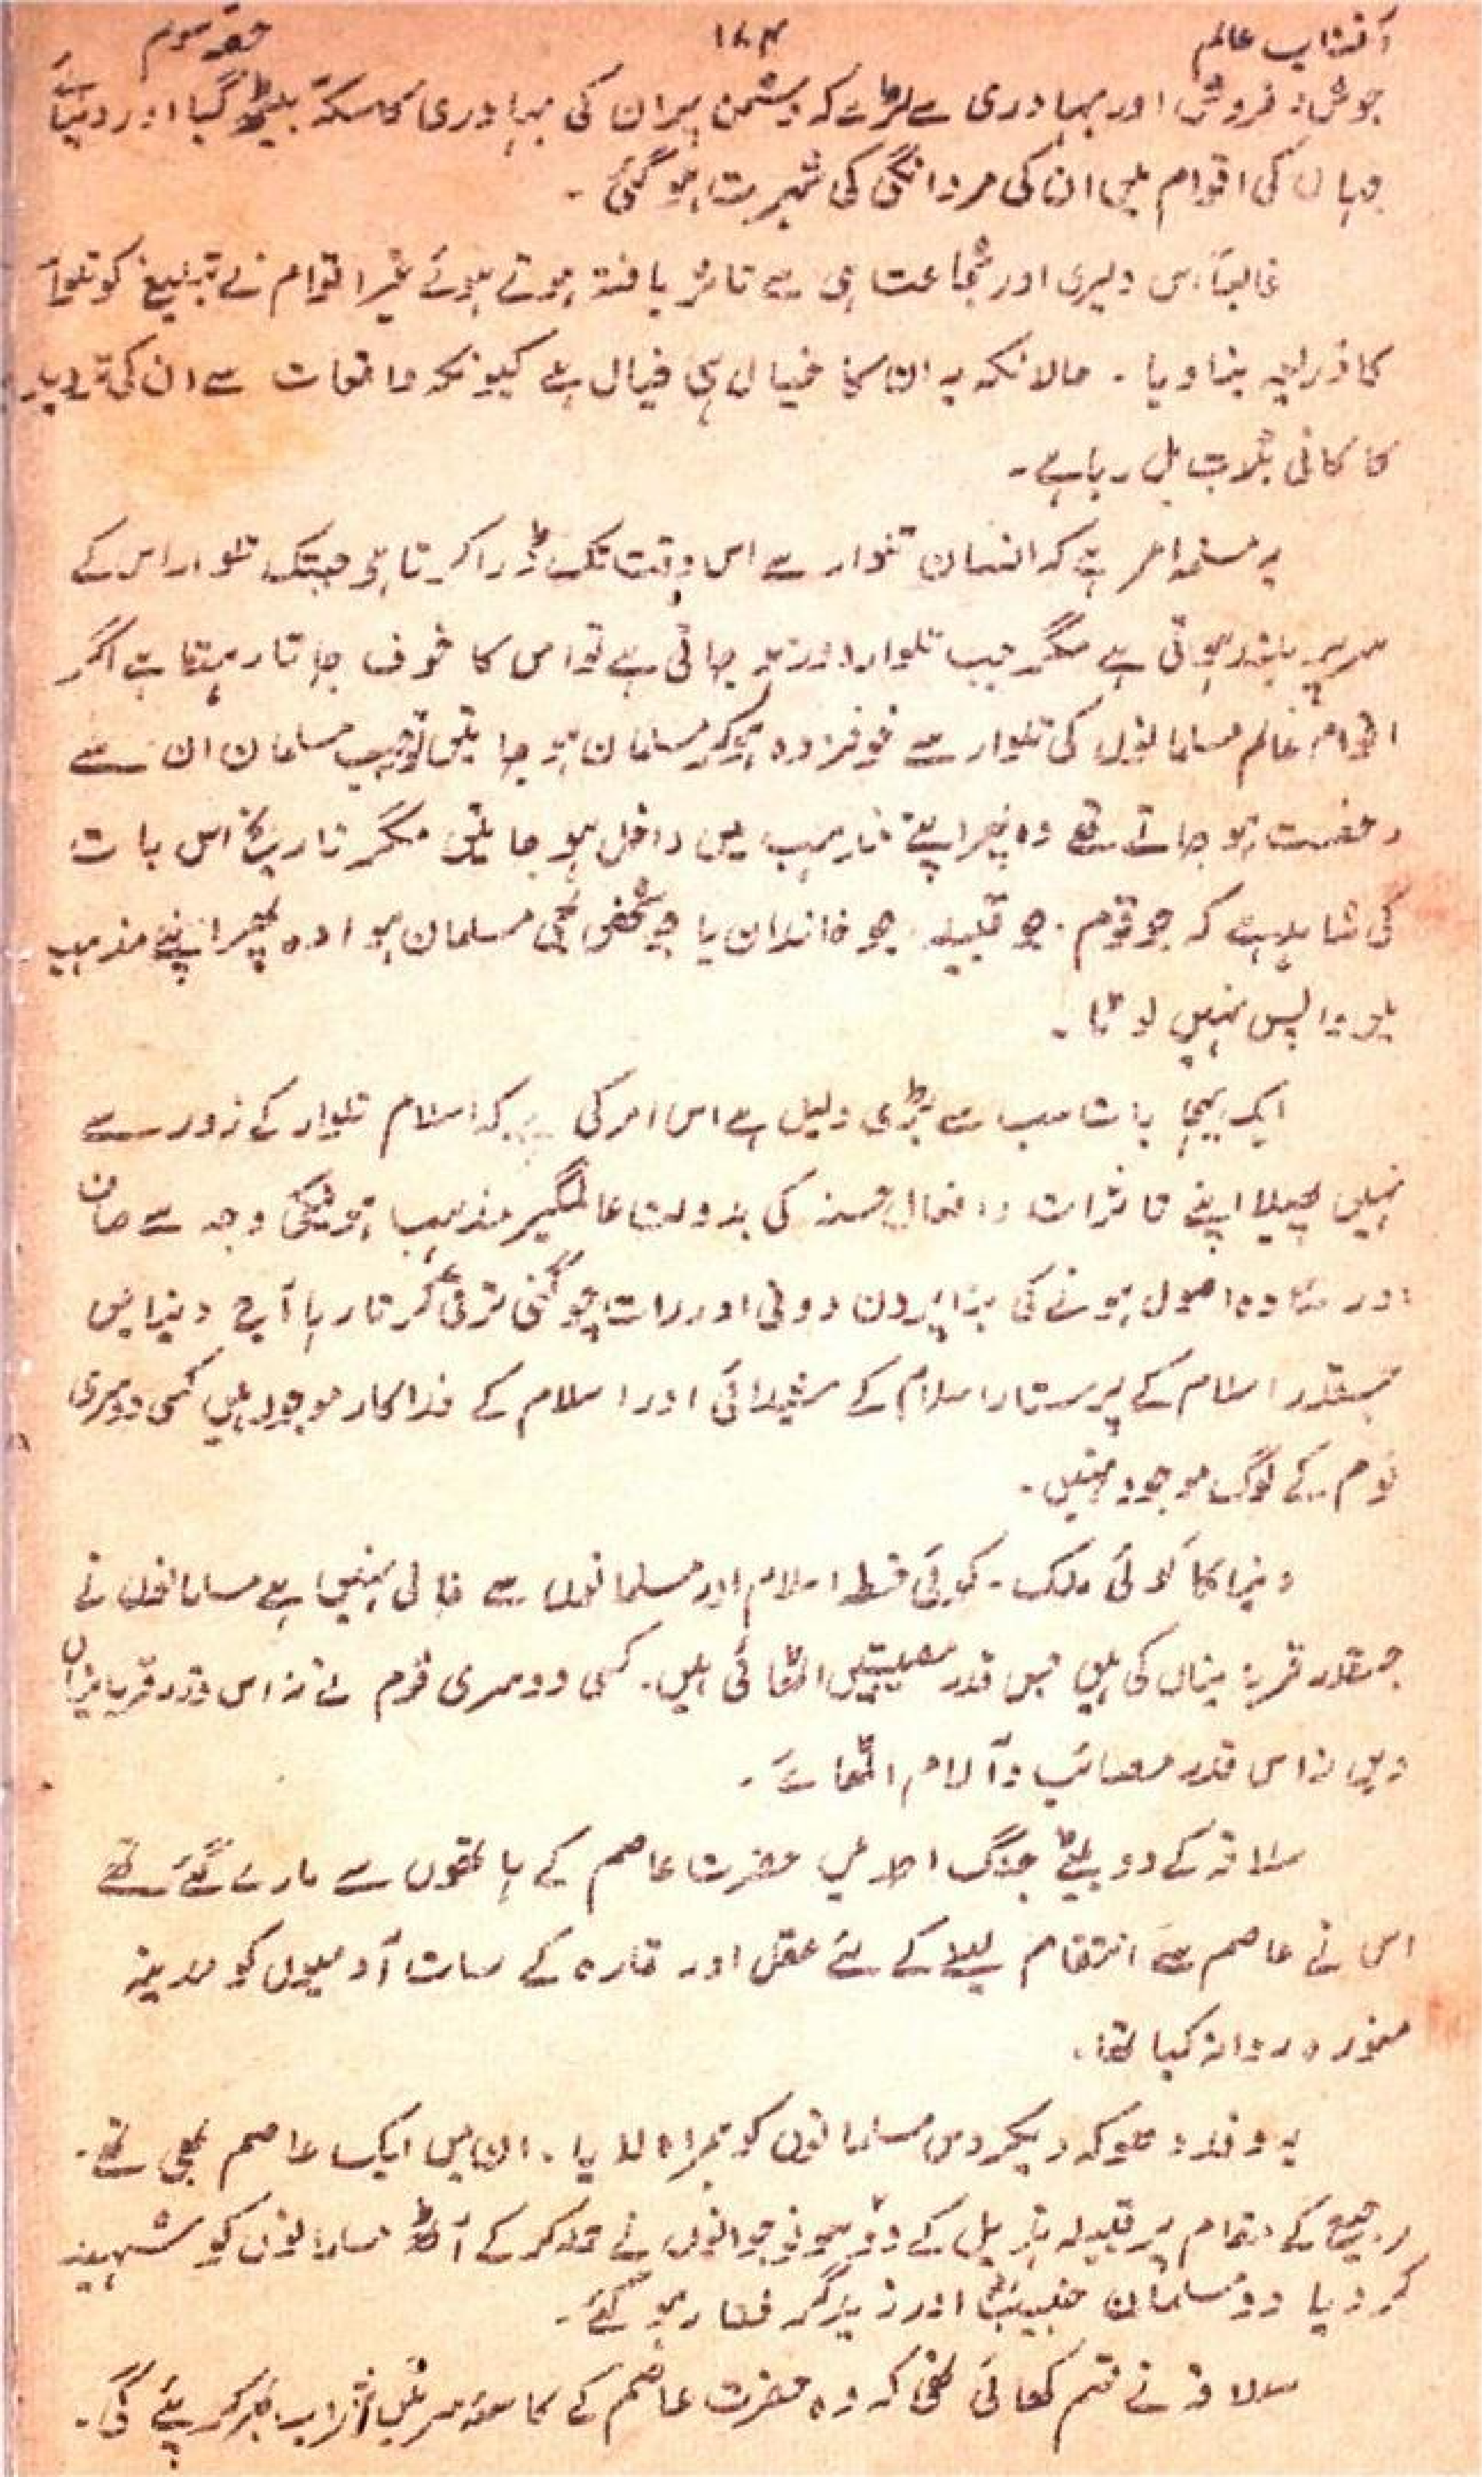 آفتاب عالم ۱۸۴ حصہ سوم
جوش و خروش اور بہادری سے لڑے کہ دشمن پر ان کی بہادری کا سکّہ بیٹھ گیا اور دنیائے
جہاں کی اقوام میں ان کی مردانگی کی شہرت ہو گئی۔
غالباً اس دلیری اور شجاعت ہی سے تاثر یافتہ ہوتے ہوئے غیر اقوام نے تبلیغ کو تلوار
کا ذریعہ بنا دیا۔ حالانکہ یہ ان کا خیال ہی خیال ہے کیونکہ واقعات سے ان کی تردید
کا کافی ثبوت مل رہا ہے۔
یہ مسلمہ امر ہے کہ انسان تلوار سے اس وقت تک ڈرا کرتا ہے جبتک تلوار اس کے
سر پر بلند ہوتی ہے مگر جب تلوار دور ہو جاتی ہے تو اس کا خوف جاتا رہتا ہے اگر
اقوام عالم مسلمانوں کی تلوار سے خوفزدہ ہو کر مسلمان ہو جاتیں تو جب مسلمان ان سے
رخصت ہو جاتے تھے وہ پھر اپنے مذہب میں داخل ہو جاتیں مگر تاریخ اس بات
کی شاہد ہے کہ جو قوم۔ جو قبیلہ۔ جو خاندان یا جو شخص بھی مسلمان ہوا وہ پھر اپنے مذہب
میں واپس نہیں لوٹا۔
ایک یہی بات سب سے بڑی دلیل ہے اس امر کی ہے کہ اسلام تلوار کے زور سے
نہیں پھیلا اپنے تاثرات و افعال حسنہ کی بدولت عالمگیر مذہب ہونیکی وجہ سے صاف
اور سادہ اصول ہونے کی بنا پر دن دونی اور رات چوگنی ترقی کرتا رہا آج دنیا میں
جسقدر اسلام کے پرستار اسلام کے شیدائی اور اسلام کے فداکار موجود ہیں کسی دوسری
قوم کے لوگ موجود نہیں۔
دنیا کا کوئی ملک۔ کوئی خطہ اسلام اور مسلمانوں سے خالی نہیں ہے مسلمانوں نے
جسقدر قربانیاں کی ہیں جس قدر مصیبتیں اٹھائی ہیں۔ کسی دوسری قوم نے نہ اس قدر قربانیاں
دیں نہ اس قدر مصائب و آلام اٹھائے۔
سلافہ کے دو بیٹے جنگ احد میں حضرت عاصم کے ہاتھوں سے مارے گئے تھے
اس نے عاصم سے انتقام لینے کے لئے عضل اور قارہ کے سات آدمیوں کو مدینہ
منورہ روانہ کیا تھا۔
یہ وفد دھوکہ دیکر دس مسلمانوں کو ہمراہ لایا۔ ان میں ایک عاصم بھی تھے۔
رجیع کے مقام پر قبیلہ ہذیل کے دو سو نوجوانوں نے حملہ کر کے آٹھ مسلمانوں کو شہید
کر دیا دو مسلمان خبیبؓ اور زیدؓ گرفتار ہو گئے۔
سلافہ نے قسم کھائی تھی کہ وہ حضرت عاصم کے کاسۂ سر میں شراب بھر کر پئے گی۔